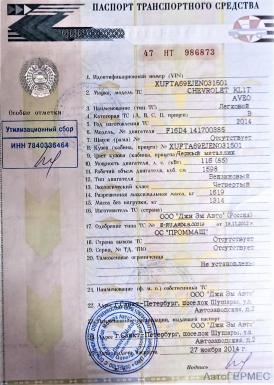 ПАСПОРТ ТРАНСПОРТНОГО СРЕДСТВА
47 НТ 986873
1. Идентификационный номер (VIN) XUFTA69EJEN031501
2. Марка, модель ТС CHEVROLET KL1T
AVEO
3. Наименование (тип ТС) Легковой
4. Категория ТС (А, В, С, D, прицеп) B
5. Год изготовления ТС 2014
6. Модель, № двигателя F16D4 141700385
7. Шасси (рама) № Отсутствует
8. Кузов (кабина, прицеп) № XUFTA69EJEN031501
9. Цвет кузова (кабины, прицепа) Черный металлик
10. Мощность двигателя, л. с. (кВт) 115 (85)
11. Рабочий объем двигателя, куб. см 1598
12. Тип двигателя Бензиновый
13. Экологический класс Четвертый
14. Разрешенная максимальная масса, кг 1619
15. Масса без нагрузки, кг 1314
16. Изготовитель ТС (страна) ООО "Джи Эм Авто" (Россия)
17. Одобрение типа ТС №
ОС "ПРОММАШ"
18. Страна вывоза ТС Отсутствует
19. Серия, № ТД, ТПО Отсутствует
20. Таможенные ограничения
Не установлены
21. Наименование (ф. и. о.) собственника ТС
ООО "Джи Эм Авто"
22. Адрес г. Санкт-Петербург, поселок Шушары, ул.
Автозаводская, д.2
23. Наименование организации, выдавшей паспорт
ООО "Джи Эм Авто"
24. Адрес г. Санкт-Петербург, поселок Шушары, ул.
Автозаводская, д.2
25. Дата выдачи паспорта 27 ноября 2014 г.
Особые отметки
Утилизационный сбор
ИНН 7840336464
АвтоГЕРМЕС